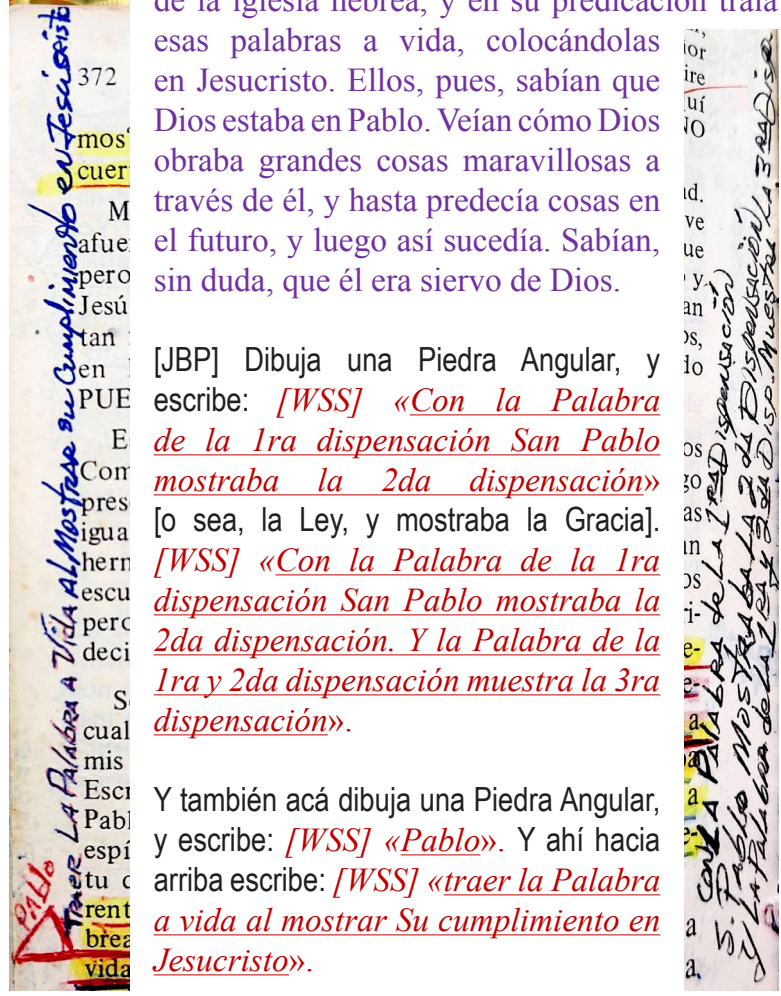 de la iglesia hebrea, y en su predicación traía
esas palabras a vida, colocándolas
en Jesucristo. Ellos, pues, sabían que
Dios estaba en Pablo. Veían cómo Dios
obraba grandes cosas maravillosas a
través de él, y hasta predecía cosas en
el futuro, y luego así sucedía. Sabían,
sin duda, que él era siervo de Dios.
[JBP] Dibuja una Piedra Angular, y
escribe: [WSS] «Con la Palabra
de la 1ra dispensación San Pablo
mostraba la 2da dispensación»
[o sea, la Ley, y mostraba la Gracia].
[WSS] «Con la Palabra de la 1ra
dispensación San Pablo mostraba la
2da dispensación. Y la Palabra de la
1ra y 2da dispensación muestra la 3ra
dispensación».
Y también acá dibuja una Piedra Angular,
y escribe: [WSS] «Pablo». Y ahí hacia
arriba escribe: [WSS] «traer la Palabra
a vida al mostrar Su cumplimiento en
Jesucristo».
Pablo
Traer La Palabra a Vida Al Mostrar su Cumplimiento en Jesucristo
372
mos
cuer
M
afue
pero
Jesú
tan
en
PUE
E
Com
pres
igua
herm
escu
pero
deci
S
cual
mis
Escr
Pabl
espí
tu c
rent
brea
vida
Con LA PALABRA de LA 1RA Dispensación
S. Pablo MOSTRABA LA 2da Dispensación
Y La Palabra de la 1RA y 2da Disp. Muestra LA 3RA Disp.